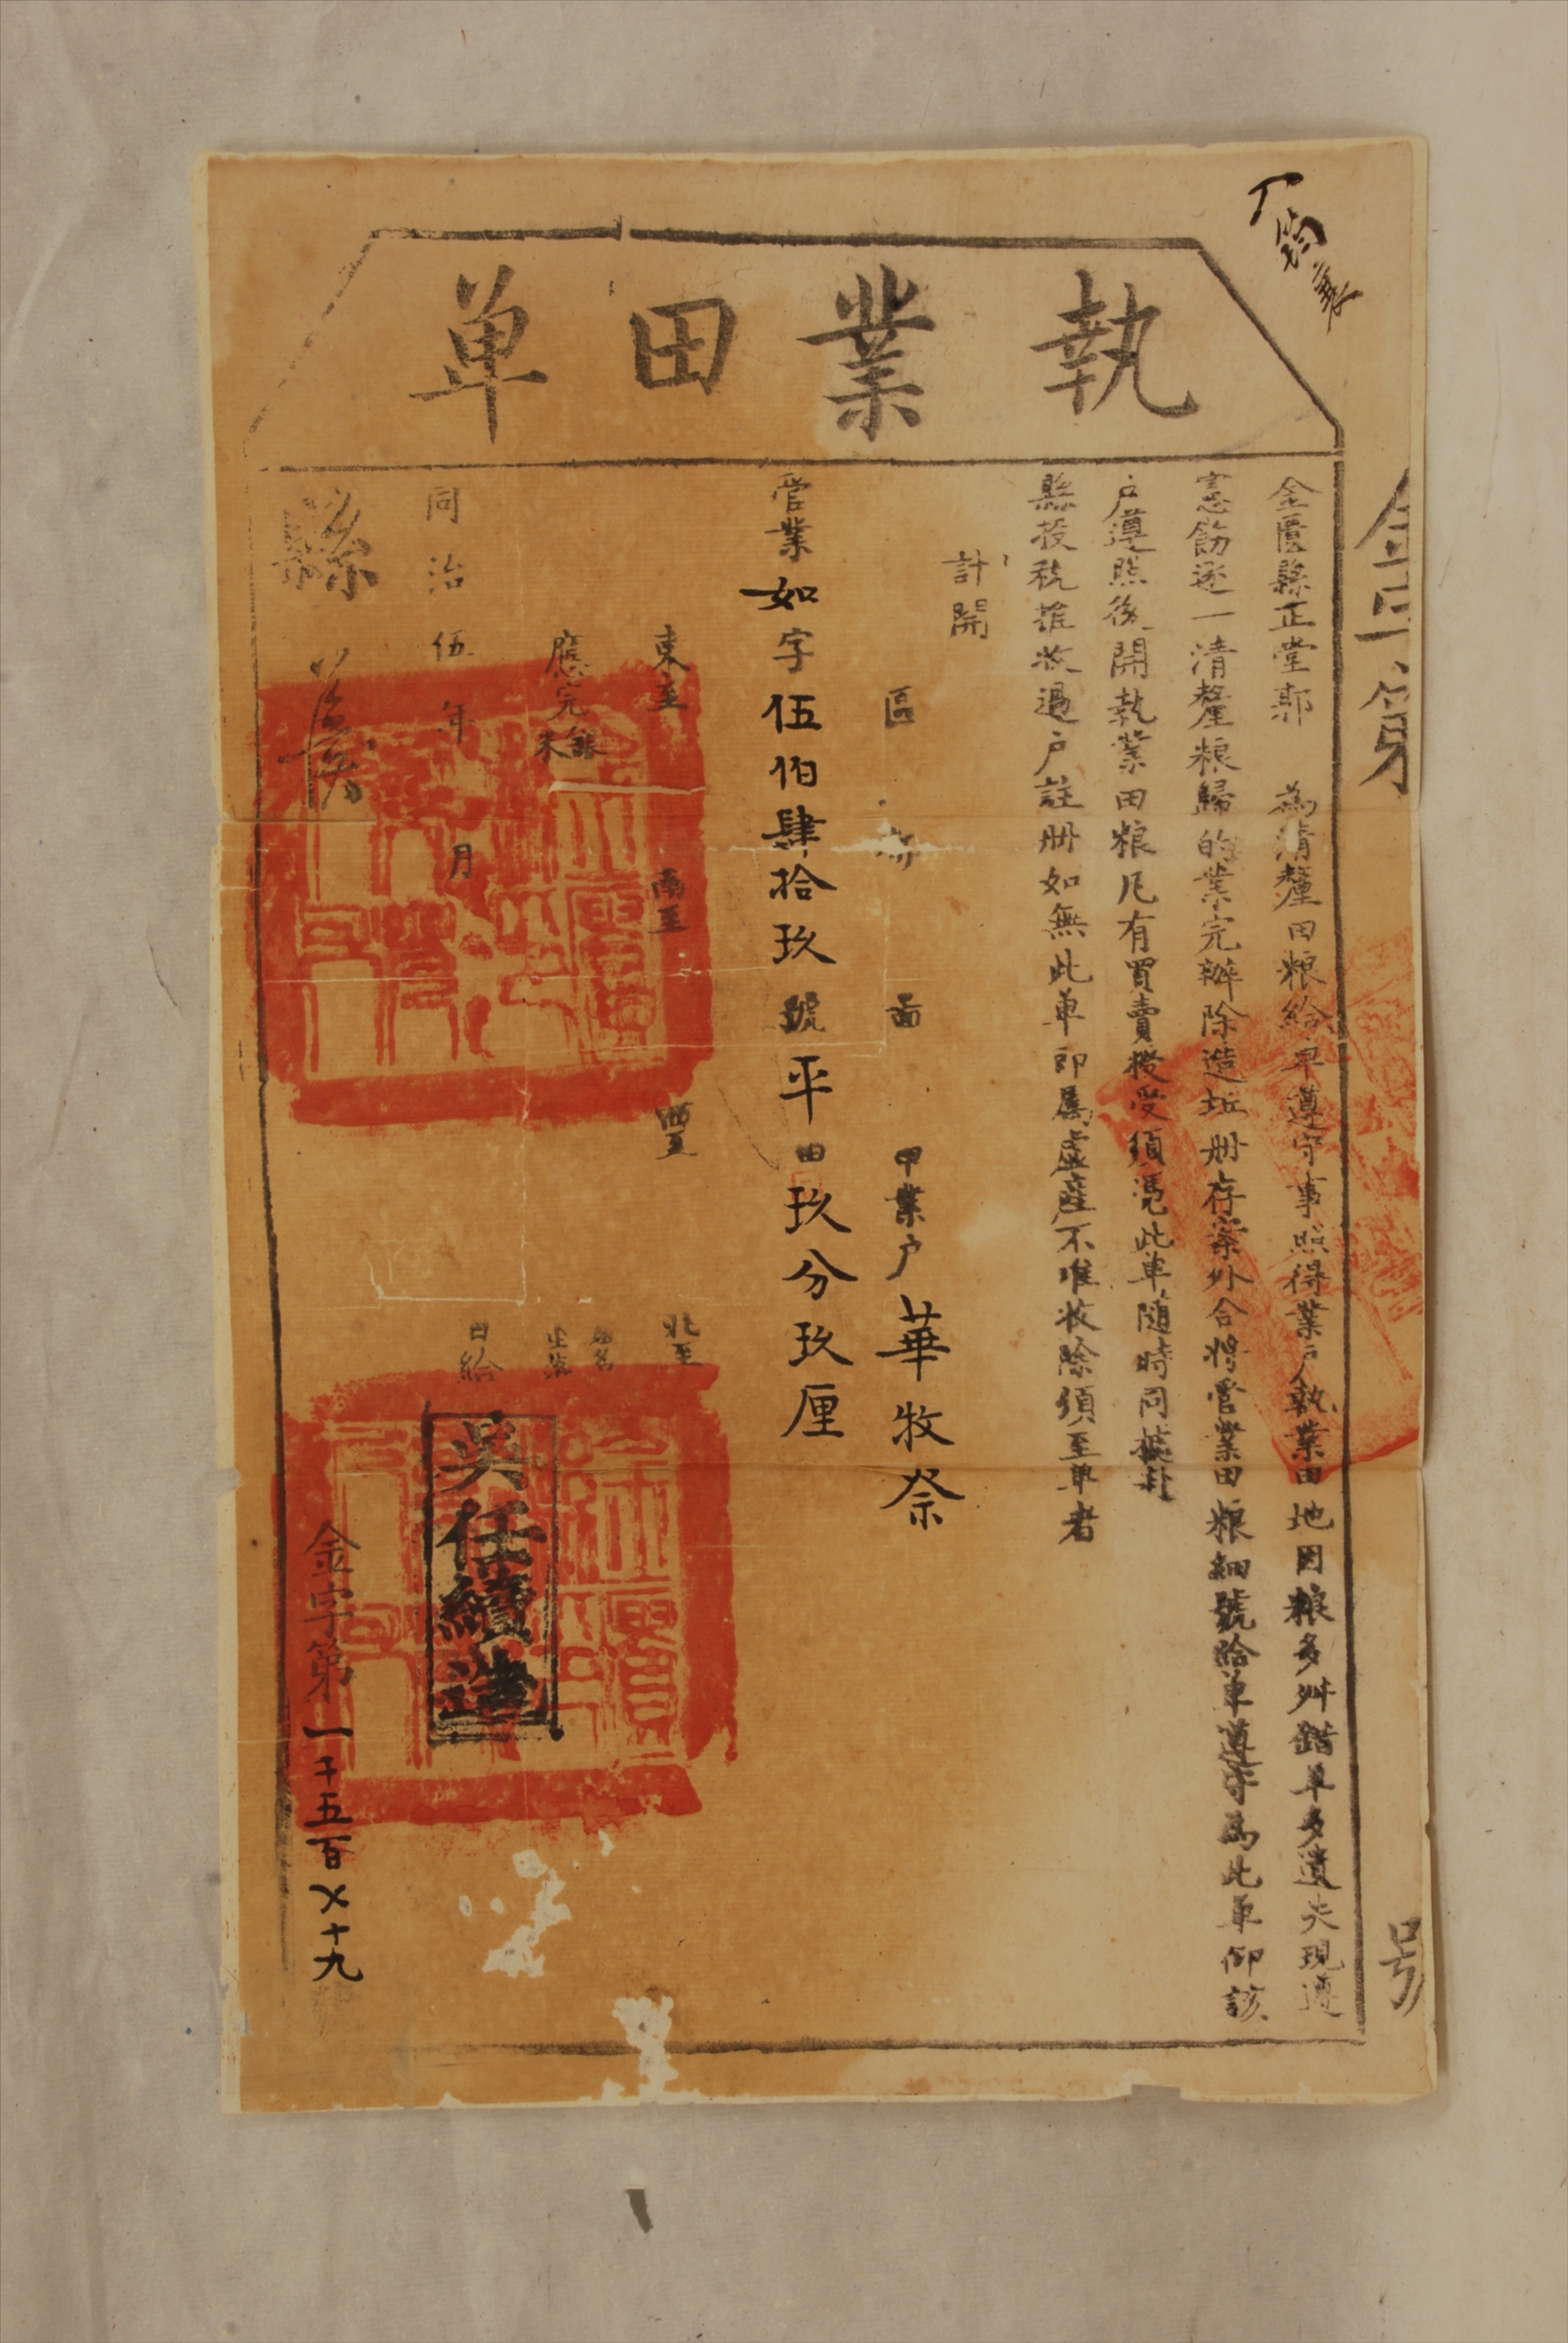 執業田單
金匱縣正堂郭 為清釐田粮給单遵守事照得業戶執業田地因粮多舛錯单多遺失現遵
憲飭逐一清釐粮歸的業完辦除造坵册存案外合將管業田粮細號給单遵守為此单仰該
戶遵照後開執業田粮凡有買賣授受須憑此单随時同契赴
縣投税推收過戶註册如無此单即属虚産不准收除須至单者
計開
區 啚 甲業戶華牧祭
管業如字伍伯肆拾玖號平田玖分玖厘
東至 南至 西至 北至
應完銀米
同治伍年 月 日給
吳任續造
縣
金字第一千五百㐅十九號
金字第 号